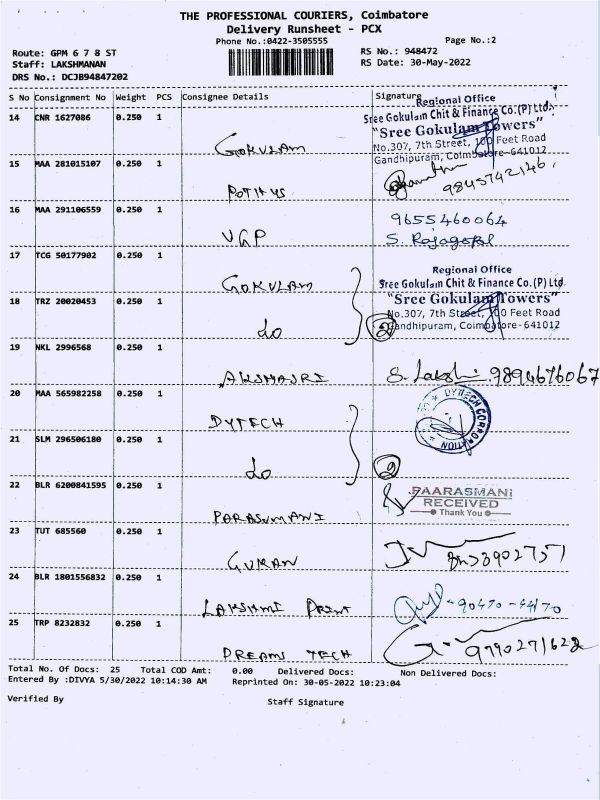 THE PROFESSIONAL COURIERS, Coimbatore
Delivery Runsheet - PCX
Phone No.:0422-3505555 Page No.:2
Route: GPM 6 7 8 ST RS No.: 948472
Staff: LAKSHMANAN RS Date: 30-May-2022
DRS No.: DCJB94847202
S No Consignment No Weight PCS Consignee Details Signature
Regional Office
14 CNR 1627086 0.250 1 GOKULAM Sree Gokulam Chit & Finance Co.(P) Ltd.
"Sree Gokulam Towers"
No.307, 7th Street, 100 Feet Road
Gandhipuram, Coimbatore-641012
15 MAA 281015107 0.250 1 POTHYS 9843742146.
16 MAA 291106559 0.250 1 VGP 9655460064
S. Rajagopal
17 TCG 50177902 0.250 1 GOKULAM Regional Office
Sree Gokulam Chit & Finance Co.(P) Ltd.
18 TRZ 20020453 0.250 1 do 2 "Sree Gokulam Towers"
No.307, 7th Street, 100 Feet Road
Gandhipuram, Coimbatore-641012
19 NKL 2996568 0.250 1 S. Lakshmi 9894676067
20 MAA 565982258 0.250 1 DYTECH DYTECH CORPORATION
21 SLM 296506180 0.250 1 do 2
22 BLR 6200841595 0.250 1 PARASUMANI PAARASMANI
RECEIVED
Thank You
23 TUT 685560 0.250 1
24 BLR 1801556832 0.250 1 LAKSHMI PRINT
25 TRP 8232832 0.250 1 DREAMS TECH 9790271622
Total No. Of Docs: 25 Total COD Amt: 0.00 Delivered Docs: Non Delivered Docs:
Entered By :DIVYA 5/30/2022 10:14:30 AM Reprinted On: 30-05-2022 10:23:04
Verified By Staff Signature